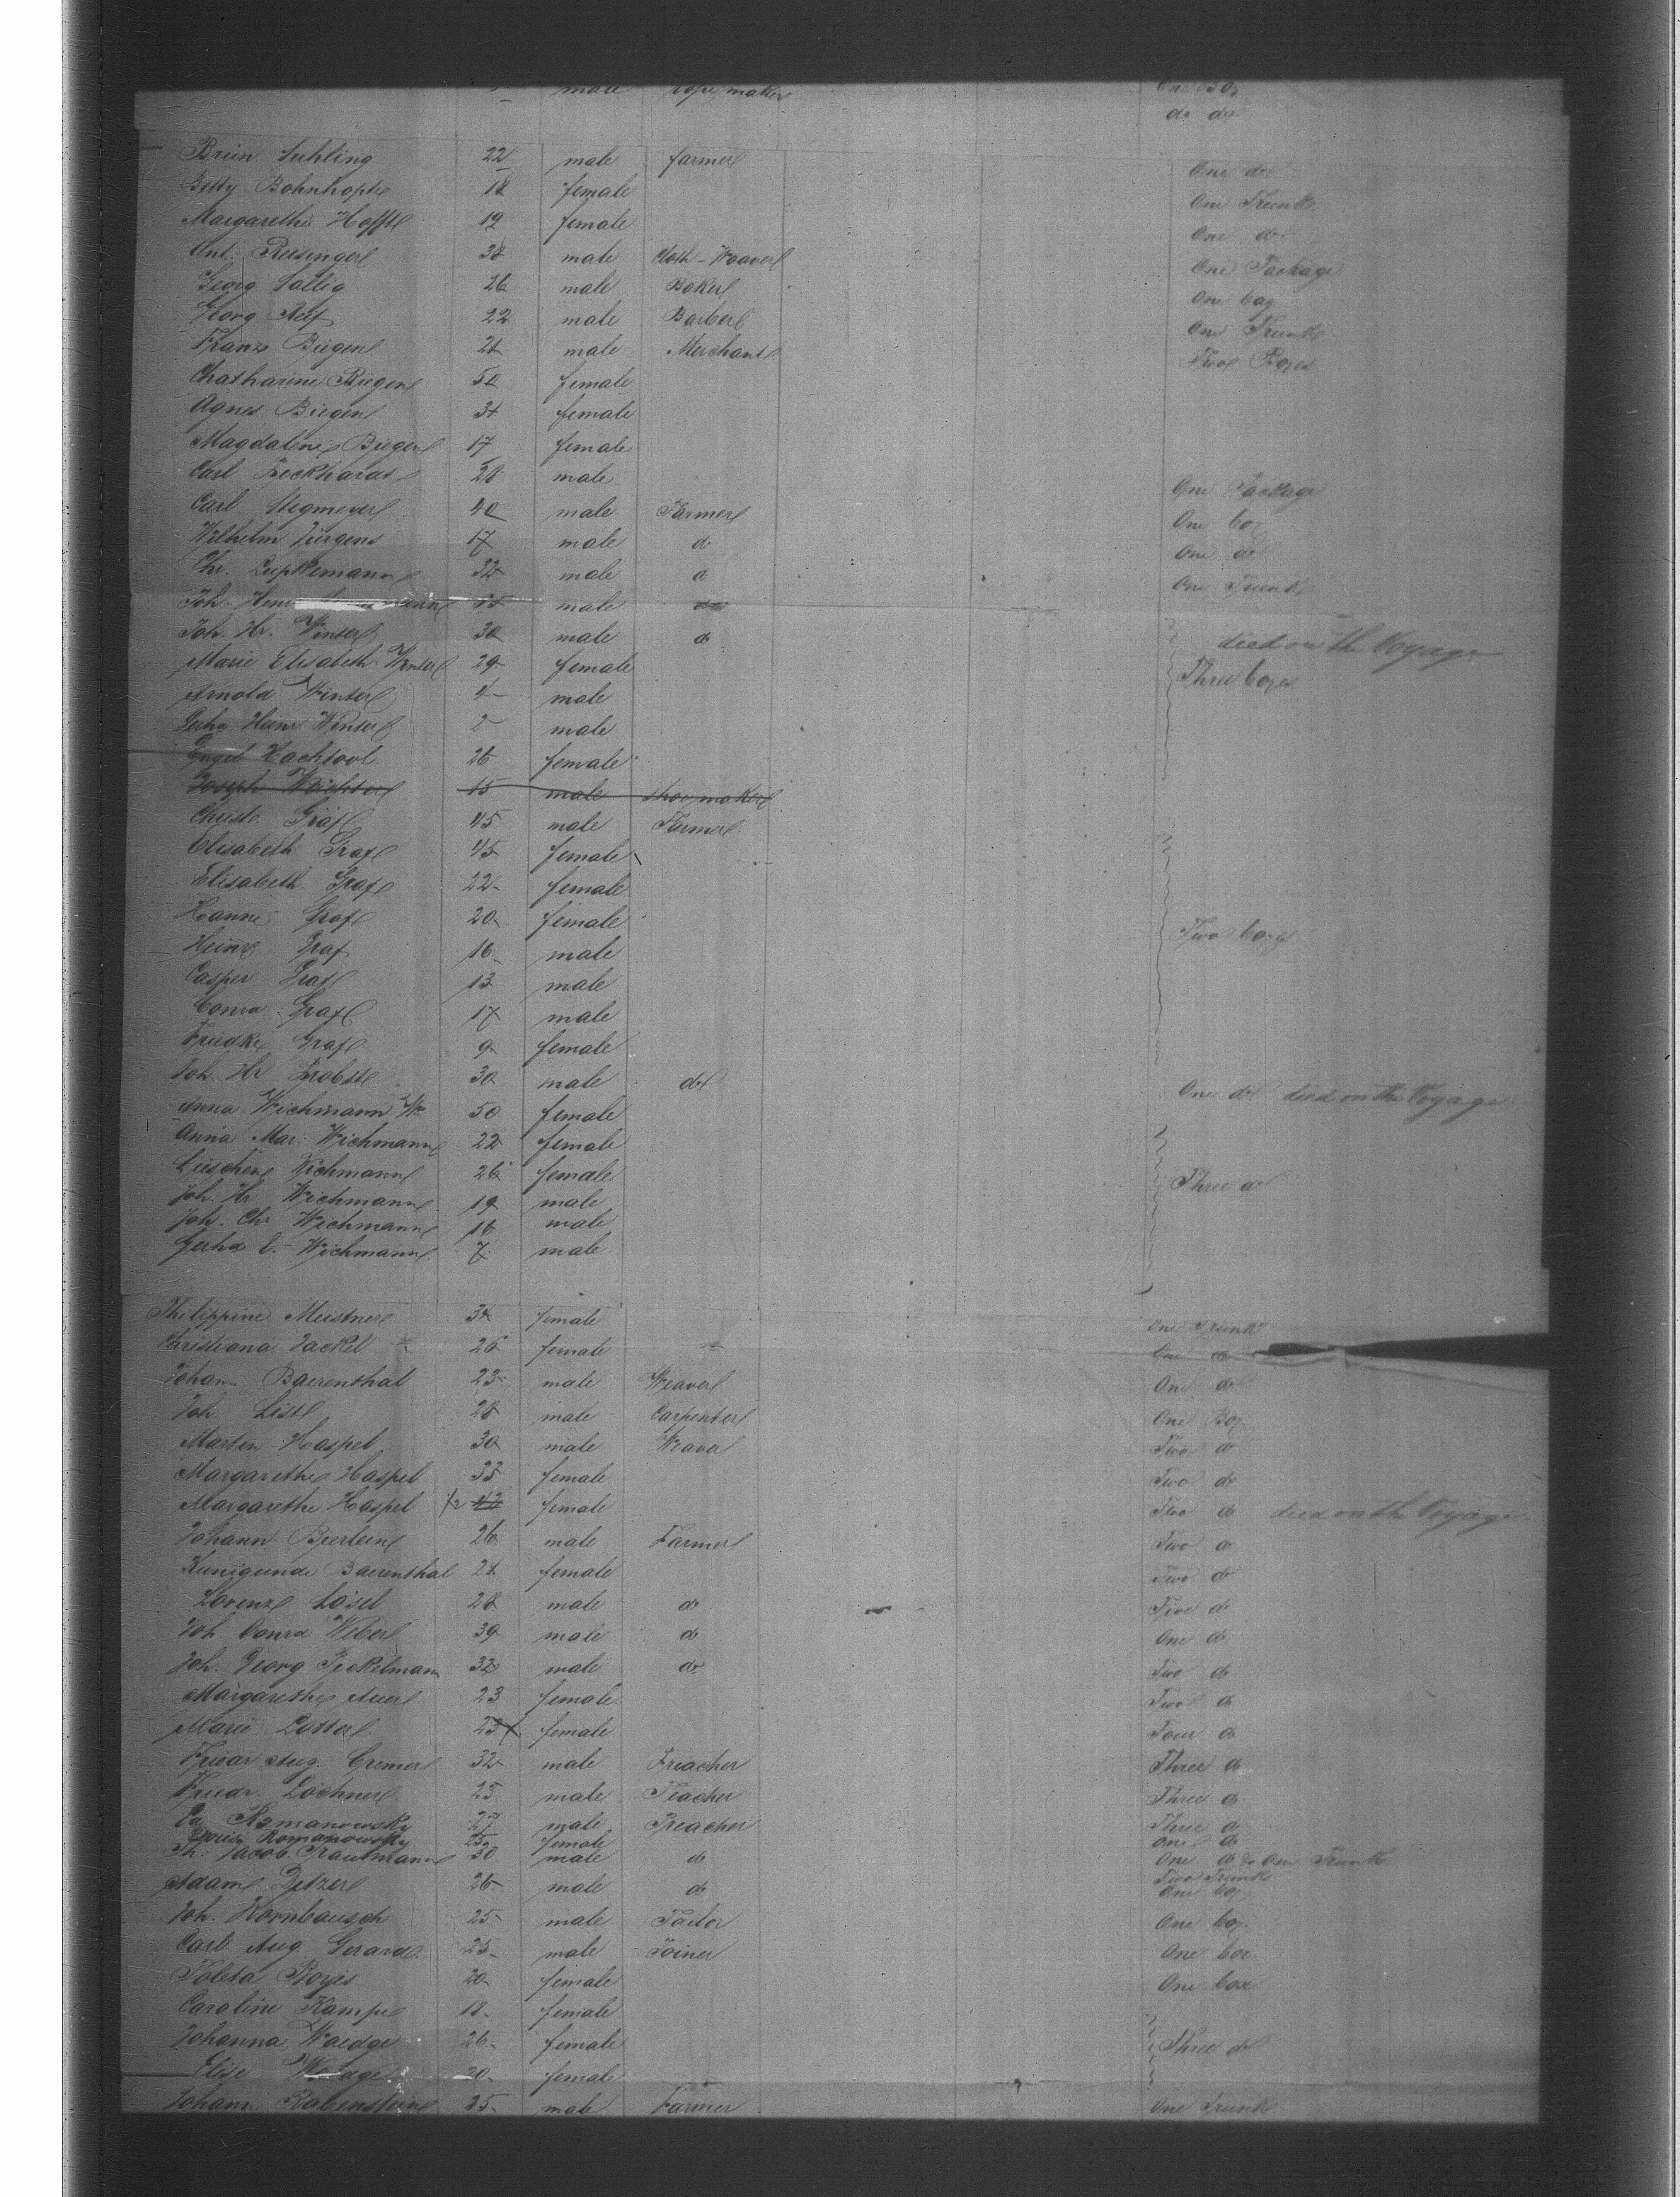 male Rope maker One Box
do do
Brün Suhling 22 male farmer One do
Betty Bohnhopte 18 female One Trunk
Margarethe Hoffte 19 female One do
Ant. Reisinger 38 male Cloth-Weaver One Package
Georg Sallig 26 male Baker One bag
Georg 22 male Barber One Trunk
Franz Biegen 24 male Merchant Two Boxes
Chatharine Biegen 50 female
Agnes Biegen 34 female
Magdalene Biegen 17 female
Carl 28 male One Package
Carl Stegmeyer 40 male Farmer One box
Wilhelm Jürgens 17 male do One do
Chr. Lupkemann 32 male do One Trunk
Joh. Heinr male
Joh. Hr. Winter 30 male do died on the Voyage
Marie Elisabeth Winter 29 female Three boxes
Arnold Winter 4 male
Gerhd Heinr Winter 2 male
Engel 26 female
Joseph Wächter 15 male shoemaker
Christ. Graf 45 male Farmer
Elisabeth Graf 45 female
Elisabeth Graf 22 female
Hanne Graf 20 female
Heinr Graf 16 male Two boxes
Casper Graf 13 male
Conrd Graf 17 male
Friedke Graf 9 female
Joh. Hr Probste 30 male do One do died on the Voyage
Anna Wichmann 50 female
Anna Mar. Wichmann 22 female
Lieschen Wichmann 26 female
Joh. Hr Wichmann 19 male Three do
Joh. Chr Wichmann 16 male
Gerhd E. Wichmann 7 male
Philippine Meistner 34 female One Trunk
Christiana Jackel 26 female One do
Johann Baerenthal 23 male Weaver One do
Joh. List 28 male Carpenter One Box
Martin Haspel 30 male Weaver Two do
Margarethe Haspel 33 female Two do
Margarethe Haspel 1/2 female Two do died on the Voyage
Johann Bierlein 26 male Farmer Two do
Kunigunde Baerenthal 24 female Two do
Lorenz Lösel 28 male do Two do
Joh. Conrd Weber 39 male do One do
Joh. Georg Peckelmann 32 male do Two do
Margarethe Auer 23 female Two do
Marie Lotter 23 female Four do
Friedr Aug. Cremer 32 male Preacher Three do
Friedr. Lochner 25 male Teacher Three do
Ed Romanowsky 27 male Preacher Three do
Doris Romanowsky 25 female One do
Ph. Jacob Trautmann 30 male do One do & One Trunk
Adam Detzer 26 male do Two Trunks One box
Joh. Kornbausch 25 male Tailor One box
Carl Aug. Gerard 25 male Joiner One box
Toleta 20 female One box
Caroline Kampe 18 female
Johanna Waedge 26 female Three do
Elise Waedge 20 female
Johann Rabenstein 25 male Farmer One Trunk